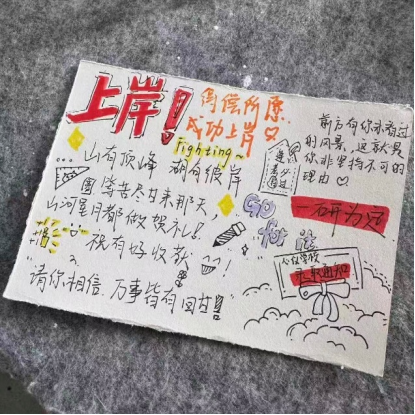 上岸!
得偿所愿
成功上岸
fighting~
前方有你未看过
的风景,这就是
你非坚持不可的
理由
山有顶峰 湖有彼岸
苦尽甘来那天,
山河星月都做贺礼!
祝有好收获
请你相信,万事皆有回甘
逢考必过
Go for it
一研为定
录取通知